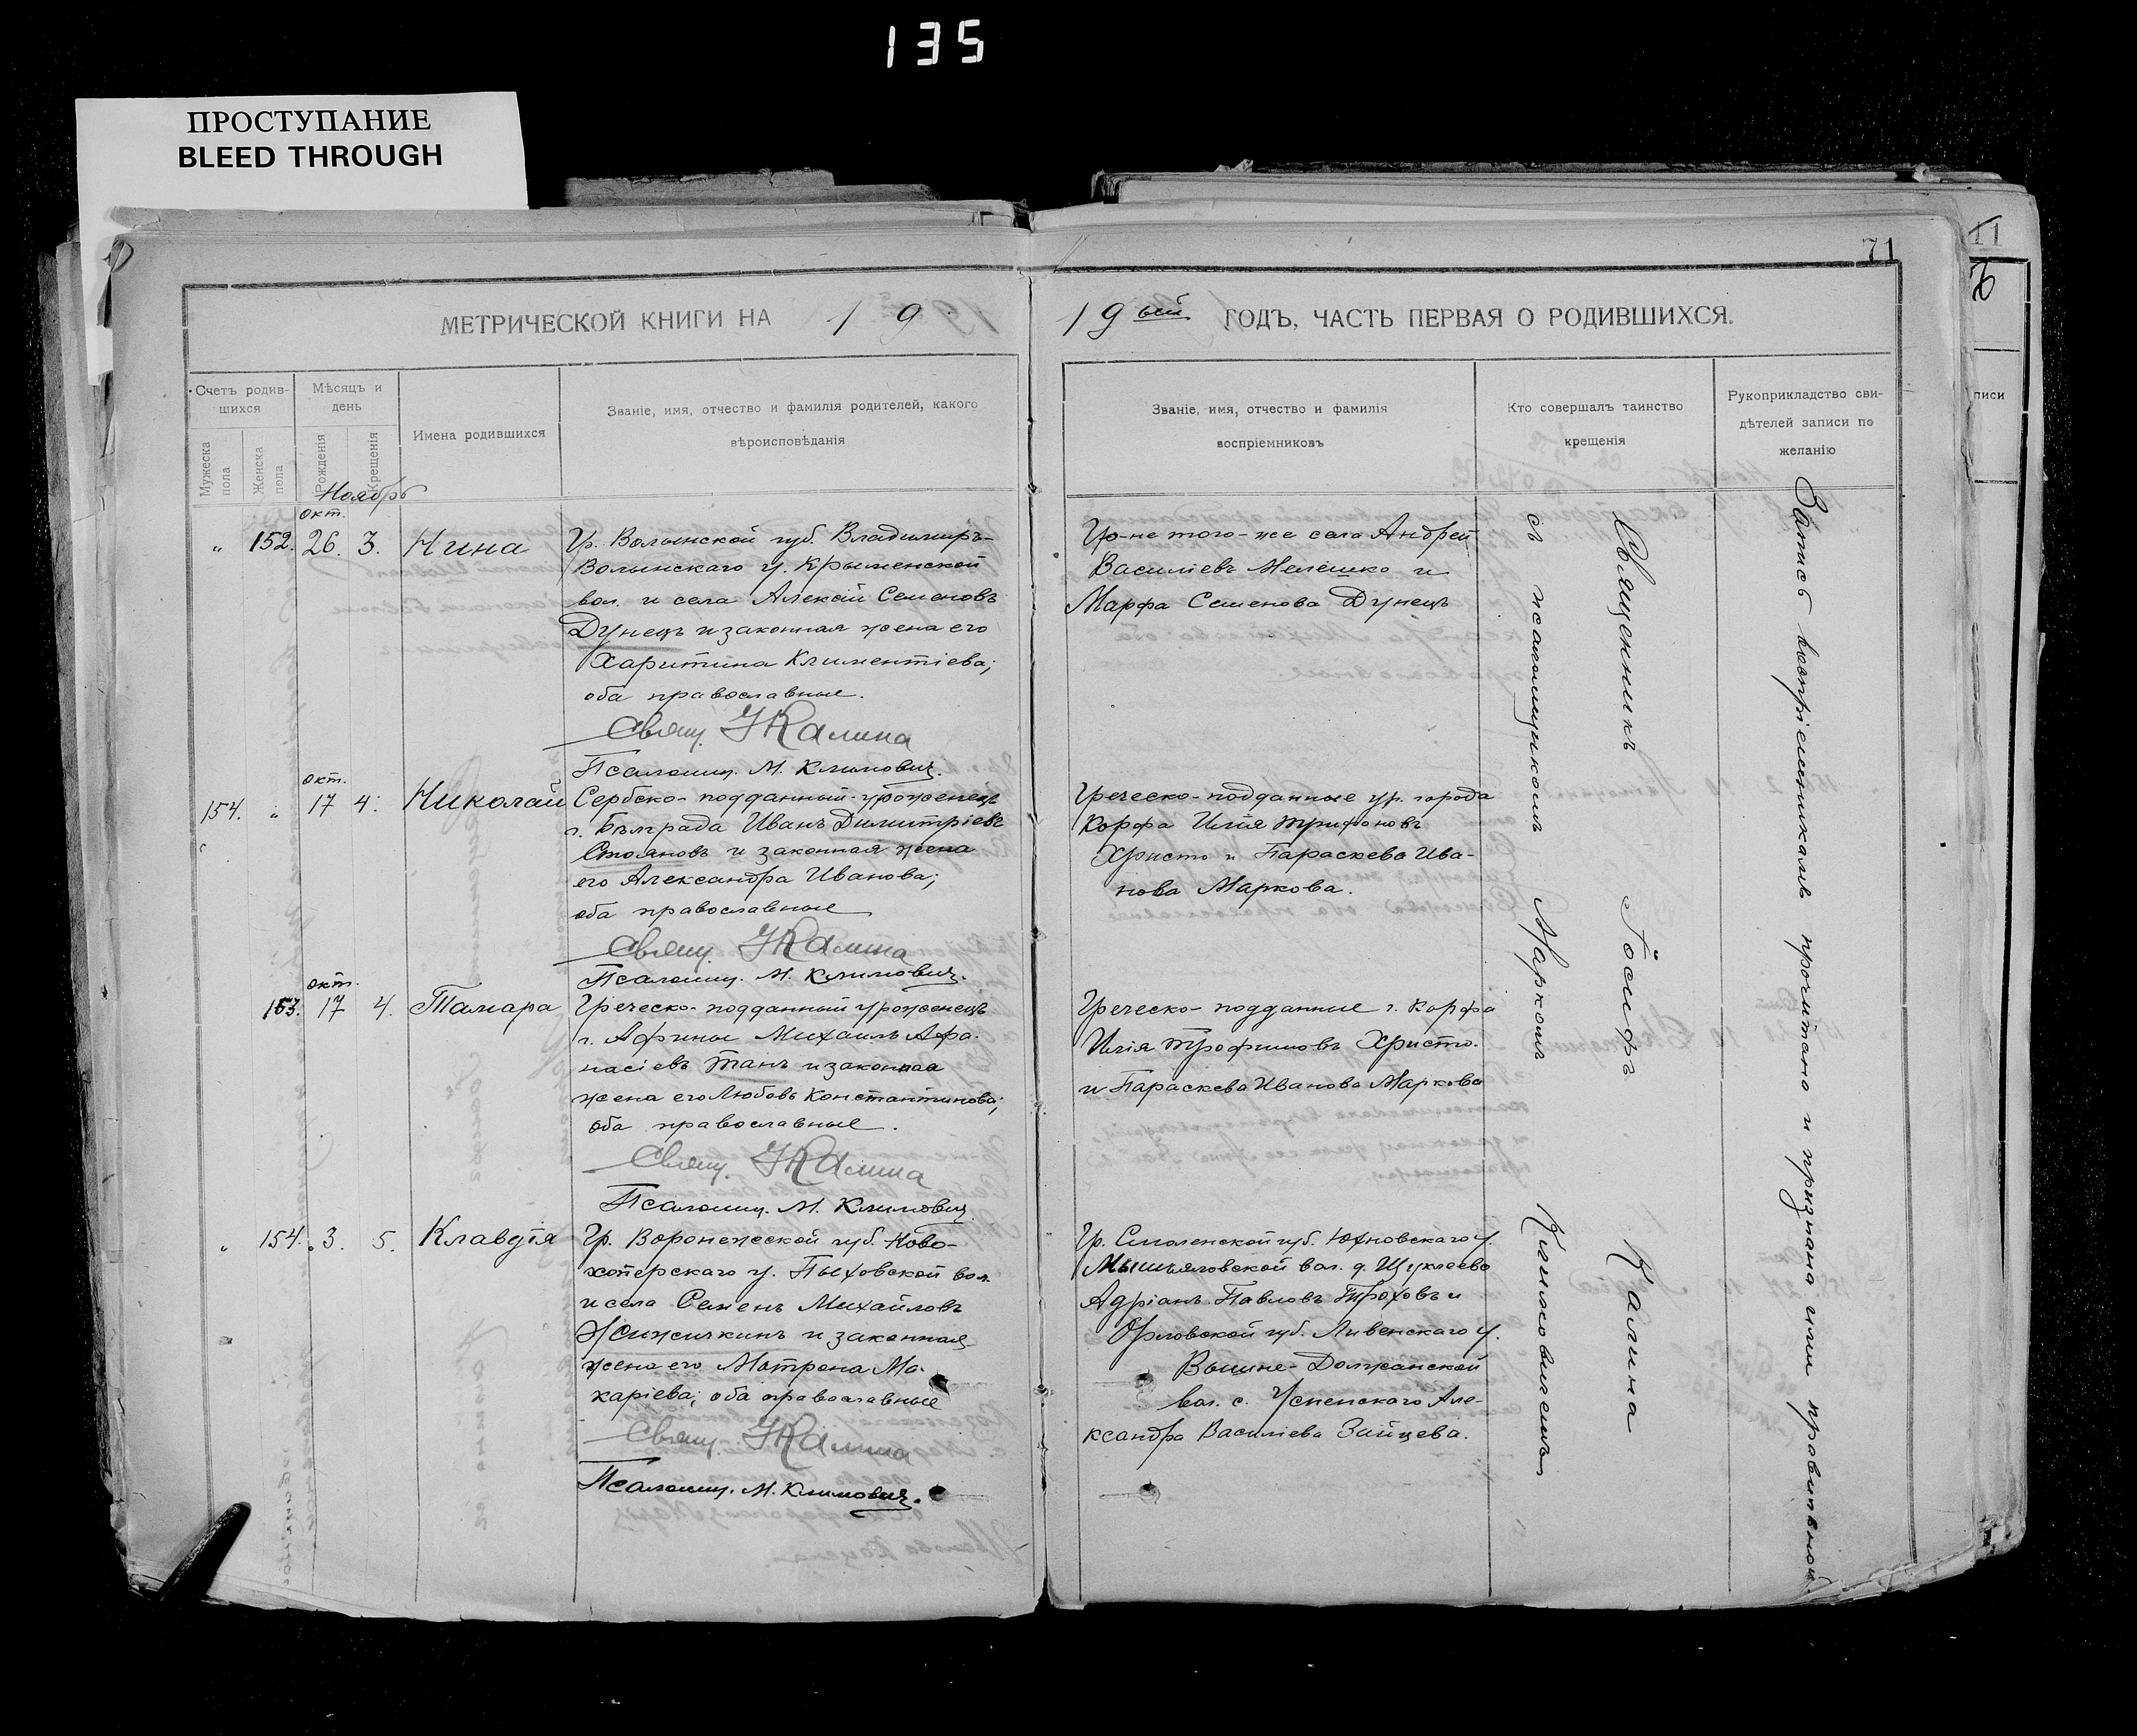 135
ПРОСТУПАНИЕ
BLEED THROUGH
71
МЕТРИЧЕСКОЙ КНИГИ НА 19
19ый ГОДЪ, ЧАСТЬ ПЕРВАЯ О РОДИВШИХСЯ.
Счетъ родив-
шихся
Мужеска пола
Женска пола
Мѣсяцъ и
день
Рожденія
Крещенія
Имена родившихся
Званіе, имя, отчество и фамилія родителей, какого
вѣроисповѣданія
Званіе, имя, отчество и фамилія
воспріемниковъ
Кто совершалъ таинство
крещенія
Рукоприкладство сви-
дѣтелей записи по
желанію
писи
Ноябрь
окт.
" 152. 26. 3. Нина
Гр. Волынской губ. Владимиръ-
Волынскаго у. Крыменской
вол. и села Алексѣй Семеновъ
Дунецъ и законная жена его
Харитина Климентіева;
оба православные.
Свящ. І Калина
Псаломщ. М. Климович.
Гр-не того-же села Андрей
Василіевъ Мелешко и
Марфа Семенова Дунецъ
окт.
154. " 17 4. Николай
Сербско-подданный уроженецъ
г. Бѣлграда Иванъ Димитріевъ
Стояновъ и законная жена
его Александра Иванова;
оба православные
Свящ. І Калина
Псаломщ. М. Климович.
Греческо-подданные ур. города
Корфа Илія Трифоновъ
Христо и Параскева Ива-
нова Маркова.
окт.
153. 17 4. Тамара
Греческо-подданный уроженецъ
г. Афины Михаилъ Афа-
насіевъ Танъ и законная
жена его Любовь Константинова;
оба православные.
Свящ. І Калина
Псаломщ. М. Климович
Греческо-подданные г. Корфа
Илія Трофимовъ Христо.
и Параскева Иванова Маркова
" 154. 3. 5. Клавдія
Гр. Воронежской губ. Ново-
хоперскаго у. Пыховской вол.
и села Семенъ Михайловъ
и законная
жена его Матрона Ма-
каріева; оба православные
Свящ. І Калина
Псаломщ. М. Климович.
Гр. Смоленской губ. Юхновскаго у.
вол. д. Щуклеево
Адріанъ Павловъ Троховъ и
Орловской губ. Ливенскаго у.
Вышне-Должанской
вол. с. Успенскаго Але-
ксандра Василіева Зайцева.
Священникъ Іосифъ Калина
съ псаломщикомъ Маркомъ Климовичемъ
Запись воспріемникамъ прочитана и признана ими правильной.